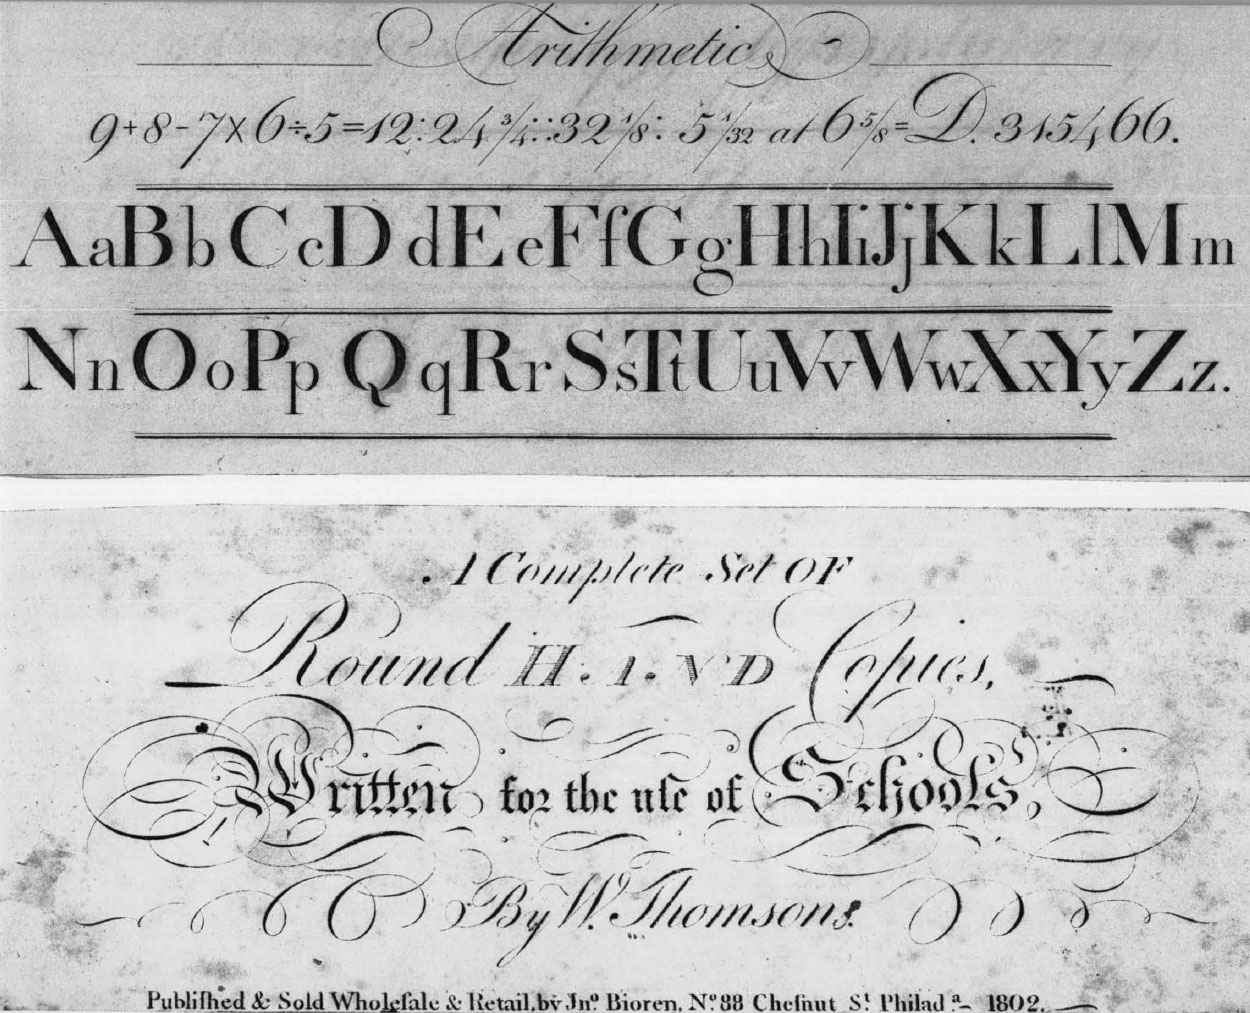 Arithmetic
9+8-7×6÷5=12:24¾::32⅛: 5 1/32 at 6⅝=D. 315466.
AaBbCcDdEeFfGgHhIiJjKkLlMm
NnOoPpQqRrSsTtUuVvWwXxYyZz.
A Complete Set OF
Round HAND Copies,
Written for the uſe of Schools,
By W. Thomson.
Publiſhed & Sold Wholeſale & Retail, by Jnº Bioren, Nº 88 Cheſnut Sᵗ Philadᵃ- 1802.